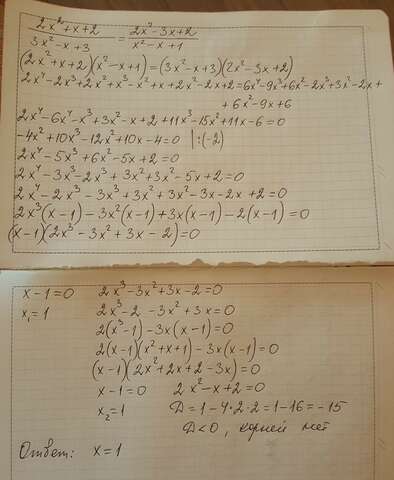 (2x²+x+2)/(3x²-x+3) = (2x²-3x+2)/(x²-x+1)
(2x²+x+2)(x²-x+1)=(3x²-x+3)(2x²-3x+2)
2x⁴-2x³+2x²+x³-x²+x+2x²-2x+2=6x⁴-9x³+6x²-2x³+3x²-2x+
+6x²-9x+6
2x⁴-6x⁴-x³+3x²-x+2+11x³-15x²+11x-6=0
-4x²+10x³-12x²+10x-4=0 |:(-2)
2x⁴-5x³+6x²-5x+2=0
2x⁴-3x³-2x³+3x²+3x²-5x+2=0
2x⁴-2x³-3x³+3x²+3x²-3x-2x+2=0
2x³(x-1)-3x²(x-1)+3x(x-1)-2(x-1)=0
(x-1)(2x³-3x²+3x-2)=0
x-1=0 2x³-3x²+3x-2=0
x₁=1 2x³-2-3x²+3x=0
2(x³-1)-3x(x-1)=0
2(x-1)(x²+x+1)-3x(x-1)=0
(x-1)(2x²+2x+2-3x)=0
x-1=0 2x²-x+2=0
x₂=1 Д=1-4*2*2=1-16=-15
Д<0, корней нет
Ответ: x=1